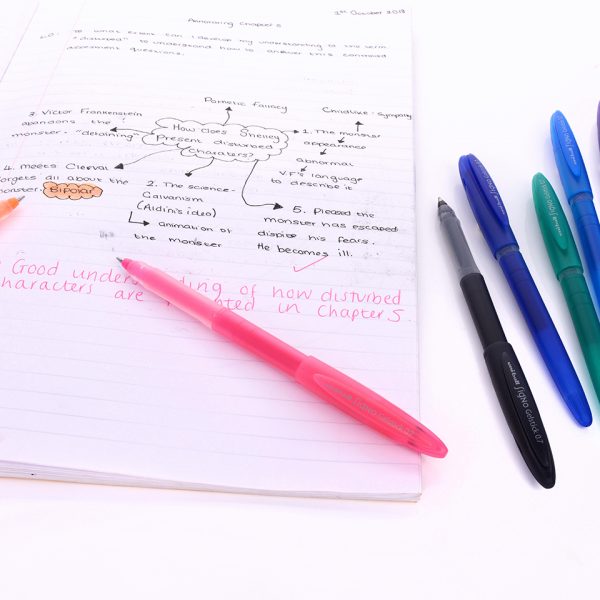 1st October 2018
Annotating Chapter 5
L.O: To what extent can I develop my understanding to the term
"disturbed" to understand how to answer this command
assessment questions.
Pathetic Fallacy
Childlike - Sympathy
3. Victor Frankenstein
abandons the
monster. "detaining"
How does Shelley
Present disturbed
Charaters?
1. The monster
appearance
abnormal
VF's language
to describe it
4. Meets Clerval
forgets all about the
monster. Bipolar
2. The science-
Galvanism
(Aldini's idea)
animation of
the monster
5. Pleased the
monster has escaped
dispite his fears.
He becomes ill.
Good understanding of how disturbed
characters are in Chapter 5
uni-ball SigNo Gelstick 0.7
SigNo Gelstick 0.7